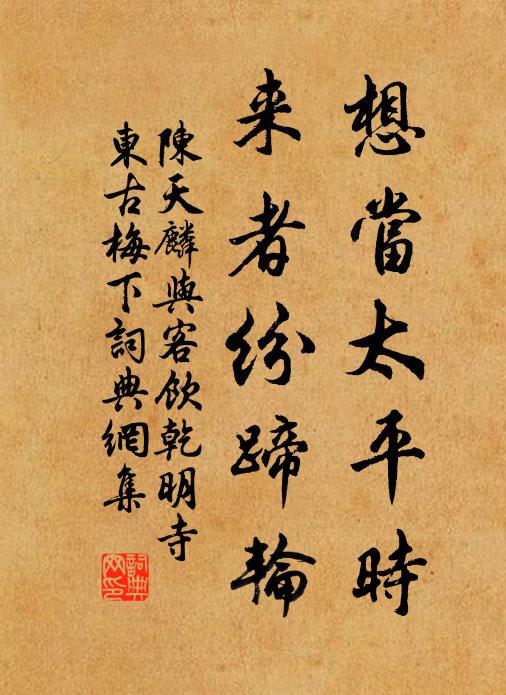 想當太平時
来者紛蹄輪
陳天麟與客飲乾明寺
東古梅下詞典網集
詞典
网印